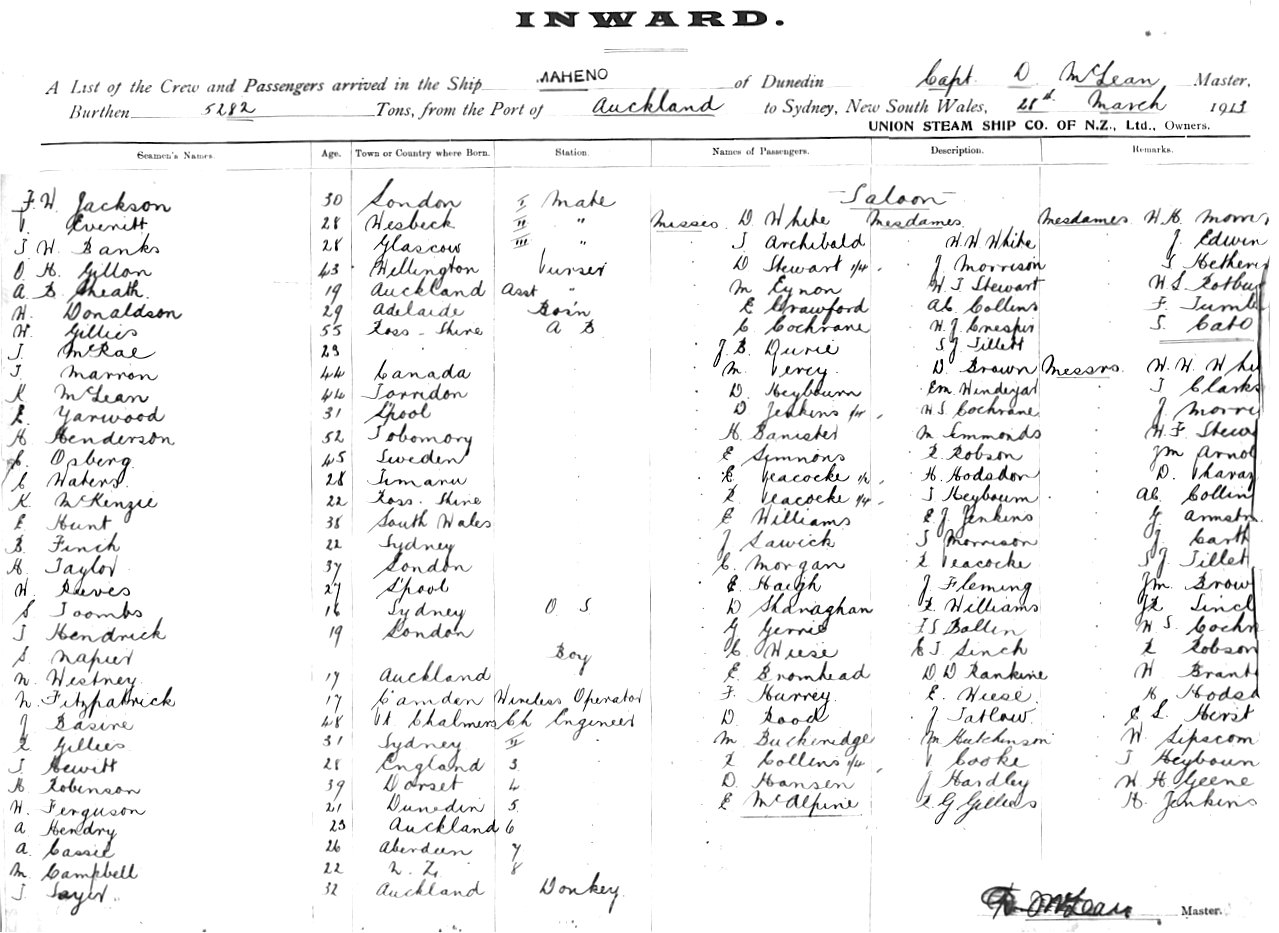 INWARD.
A List of the Crew and Passengers arrived in the Ship MAHENO of Dunedin Capt. D. McLean Master,
Burthen 5282 Tons, from the Port of Auckland to Sydney, New South Wales, 28th March 1913
UNION STEAM SHIP CO. OF N.Z., Ltd., Owners.
Seamen's Names. Age. Town or Country where Born. Station. Names of Passengers. Description. Remarks.
Saloon
F. W. Jackson 30 London I Mate
Everitt 28 Wesbeck II " Misses D White Mesdames Mesdames W. H. Morri
J W. Banks 28 Glascow III " J Archibald W. W. White J. Edwin
O H. Gillon 43 Wellington Purser D Stewart 1/4 J Morrison J Hetheri
A. B Sheath. 19 Auckland Asst " M Eynon W. J Stewart W S Rotbu
W. Donaldson 29 Adelaide Bos'n E Crawford AC Collins F Tumb
W. Gillies 55 Ross-Shire A B C Cochrane W. J S. Cato
J McRae 23 J. B. Durie S J Tillett
J. Marron 44 Canada M Percy D Brown Messrs W. W. Whi
K McLean 44 Torridon D. Heybourn Em J Clarks
E. Yarwood 31 L'pool D Jenkins 1/4 W S Cochrane J. Morri
H Henderson 52 Tobomory H. Banister M Simmonds W. J Stew
C. Osberg 45 Sweden E Simmons R Robson JM Arnol
C Waters 28 Timaru E Peacocke 1/2 H. Hodsdon D.
K McKenzie 22 Ross-Shire R Peacocke 1/4 J Heybourn AC Collin
E Hunt 38 South Wales E Williams E J Jenkins G Armstr
B. Finch 22 Sydney J Sawick S Morrison J Carth
H. Taylor 37 London C. Morgan R Peacocke S J Tillet
W. Reeves 27 L'pool E. Haigh J Fleming JM Brow
S Toombs 16 Sydney O S D Shanaghan R. Williams JR Sincl
J Hendrick 19 London G Gerrie F S Ballin W S. Cochr
S. Napier Boy C Wiese E J Sinch R Robson
W. Westney 17 Auckland E Bromhead D D Rankine W Brant
W. Fitzpatrick 17 Camden Wireless Operator F Hurrey E. Wiese H Hodsd
J Basire 48 Pt Chalmers Ch Engineer D Rood J Tatlow E S. Herst
R Gillies 31 Sydney II M Buckeridge M Hutchinson W. Sipscom
J Hewitt 28 England 3 R Collins 1/4 Cooke J Heybourn
H. Robinson 39 Dorset 4 D Hansen J Hardley W H Geene
W. Ferguson 21 Dunedin 5 E McAlpine R G Gillies H. Jenkins
A Hendry 23 Auckland 6
A Cassie 26 Aberdeen 7
M Campbell 22 N. Z. 8
J 32 Auckland Donkey
D McLean Master.